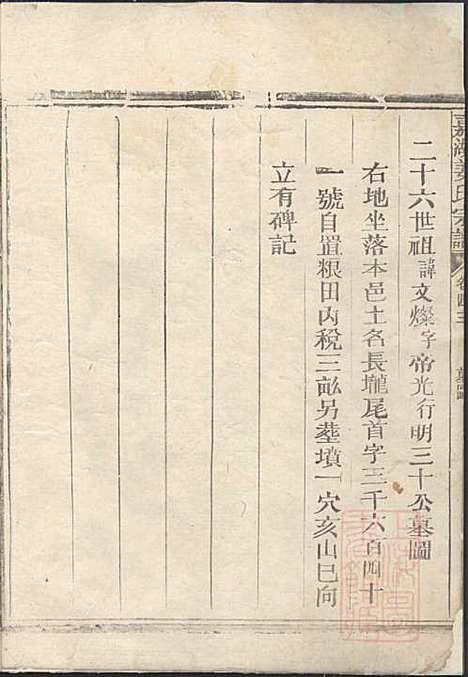 嘉湖姜氏宗譜
二十六世祖諱文燦字帝光行明三十公墓圖
右地坐落本邑土名長壠尾首字三千六百四十
一號自置粮田內税三畝另塟墳一穴亥山巳向
立有碑記